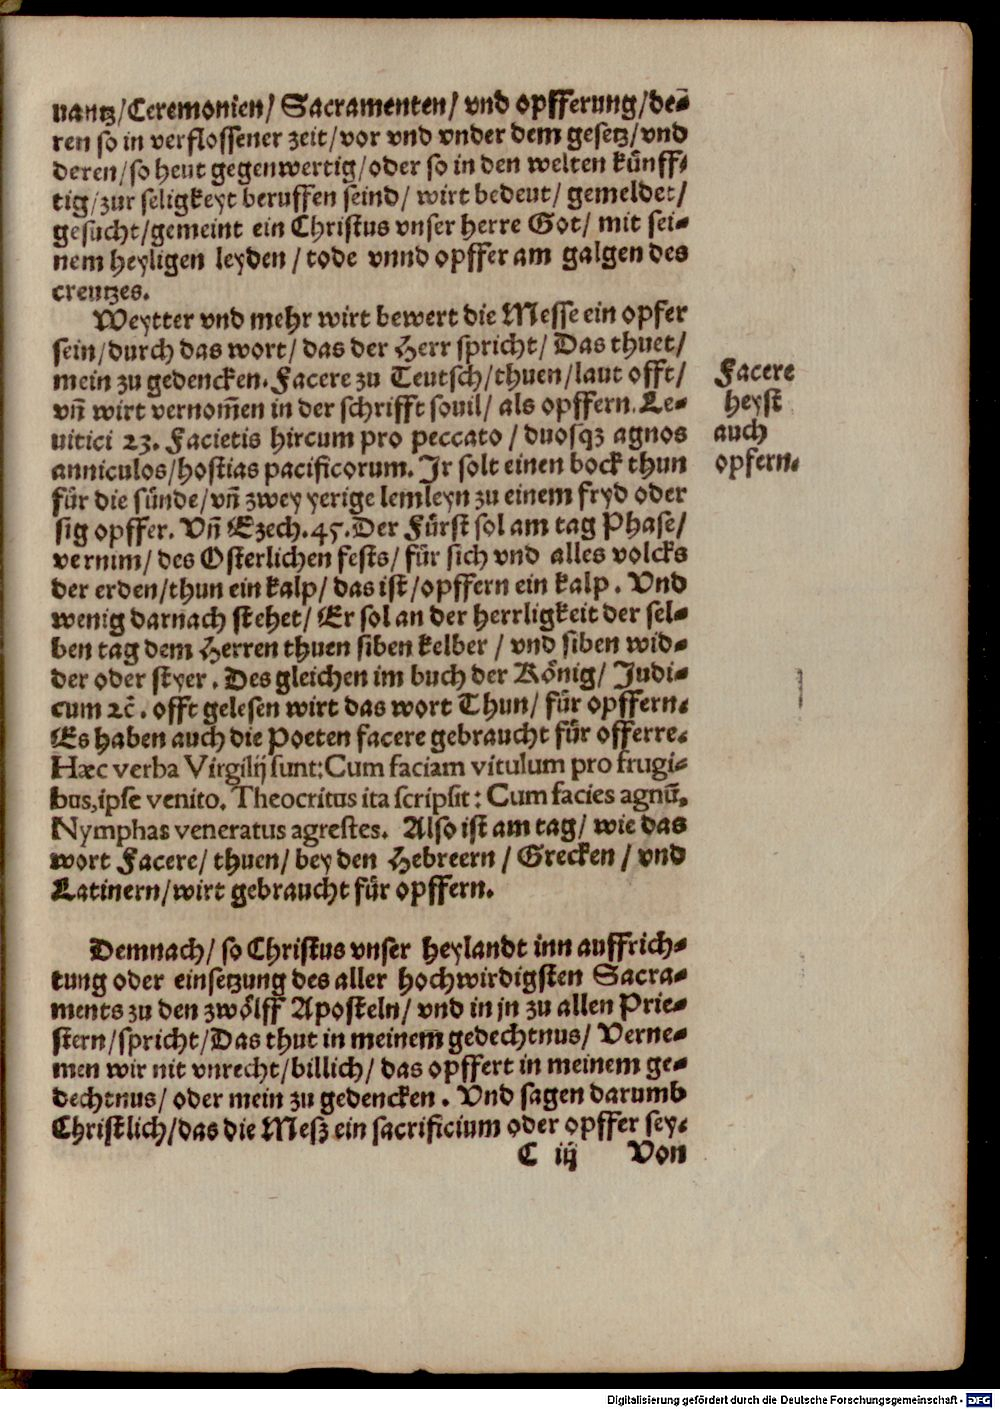 uantz/Ceremonien/ Sacramenten/ vnd opfferung/de-
ren so in verflossener zeit/vor vnd vnder dem gesetz/vnd
deren/so heut gegenwertig/oder so in den welten künff-
tig/zur seligkeyt beruffen seind/ wirt bedeut/ gemeldet/
gesucht/gemeint ein Christus vnser herre Got/ mit sei-
nem heyligen leyden/tode vnnd opffer am galgen des
creutzes.
Weytter vnd mehr wirt bewert die Messe ein opfer
sein/durch das wort/das der Herr spricht/ Das thuet/
mein zu gedencken. Facere zu Teutsch/thuen/laut offt/
vñ wirt vernom̃en in der schrifft souil/ als opffern. Le-
uitici 23. Facietis hircum pro peccato/duosqꝫ agnos
anniculos/hostias pacificorum. Ir solt einen bock thun
für die sünde/vñ zwey yerige lemleyn zu einem fryd oder
sig opffer. Vñ Ezech.45. Der Fürst sol am tag Phase/
vernim/des Osterlichen fests/ für sich vnd alles volcks
der erden/thun ein kalp/das ist/opffern ein kalp. Vnd
wenig darnach stehet/ Er sol an der herrligkeit der sel-
ben tag dem Herren thuen siben kelber/vnd siben wid-
der oder styer. Des gleichen im buch der König/ Judi-
cum ꝛc̃. offt gelesen wirt das wort Thun/ für opffern.
Es haben auch die Poeten facere gebraucht für offerre.
Hæc verba Virgilij sunt: Cum faciam vitulum pro frugi-
bus, ipse venito. Theocritus ita scripsit: Cum facies agnũ,
Nymphas veneratus agrestes. Also ist am tag/ wie das
wort Facere/ thuen/ bey den Hebreern/ Grecken/ vnd
Latinern/wirt gebraucht für opffern.
Facere
heyst
auch
opfern.
Demnach/ so Christus vnser heylandt inn auffrich-
tung oder einsetzung des aller hochwirdigsten Sacra-
ments zu den zwölff Aposteln/ vnd in jn zu allen Prie-
stern/spricht/Das thut in meinem gedechtnus/ Verne-
men wir nit vnrecht/billich/das opffert in meinem ge-
dechtnus/ oder mein zu gedencken. Vnd sagen darumb
Christlich/das die Mesz ein sacrificium oder opffer sey.
C iij Von
Digitalisierung gefördert durch die Deutsche Forschungsgemeinschaft - DFG